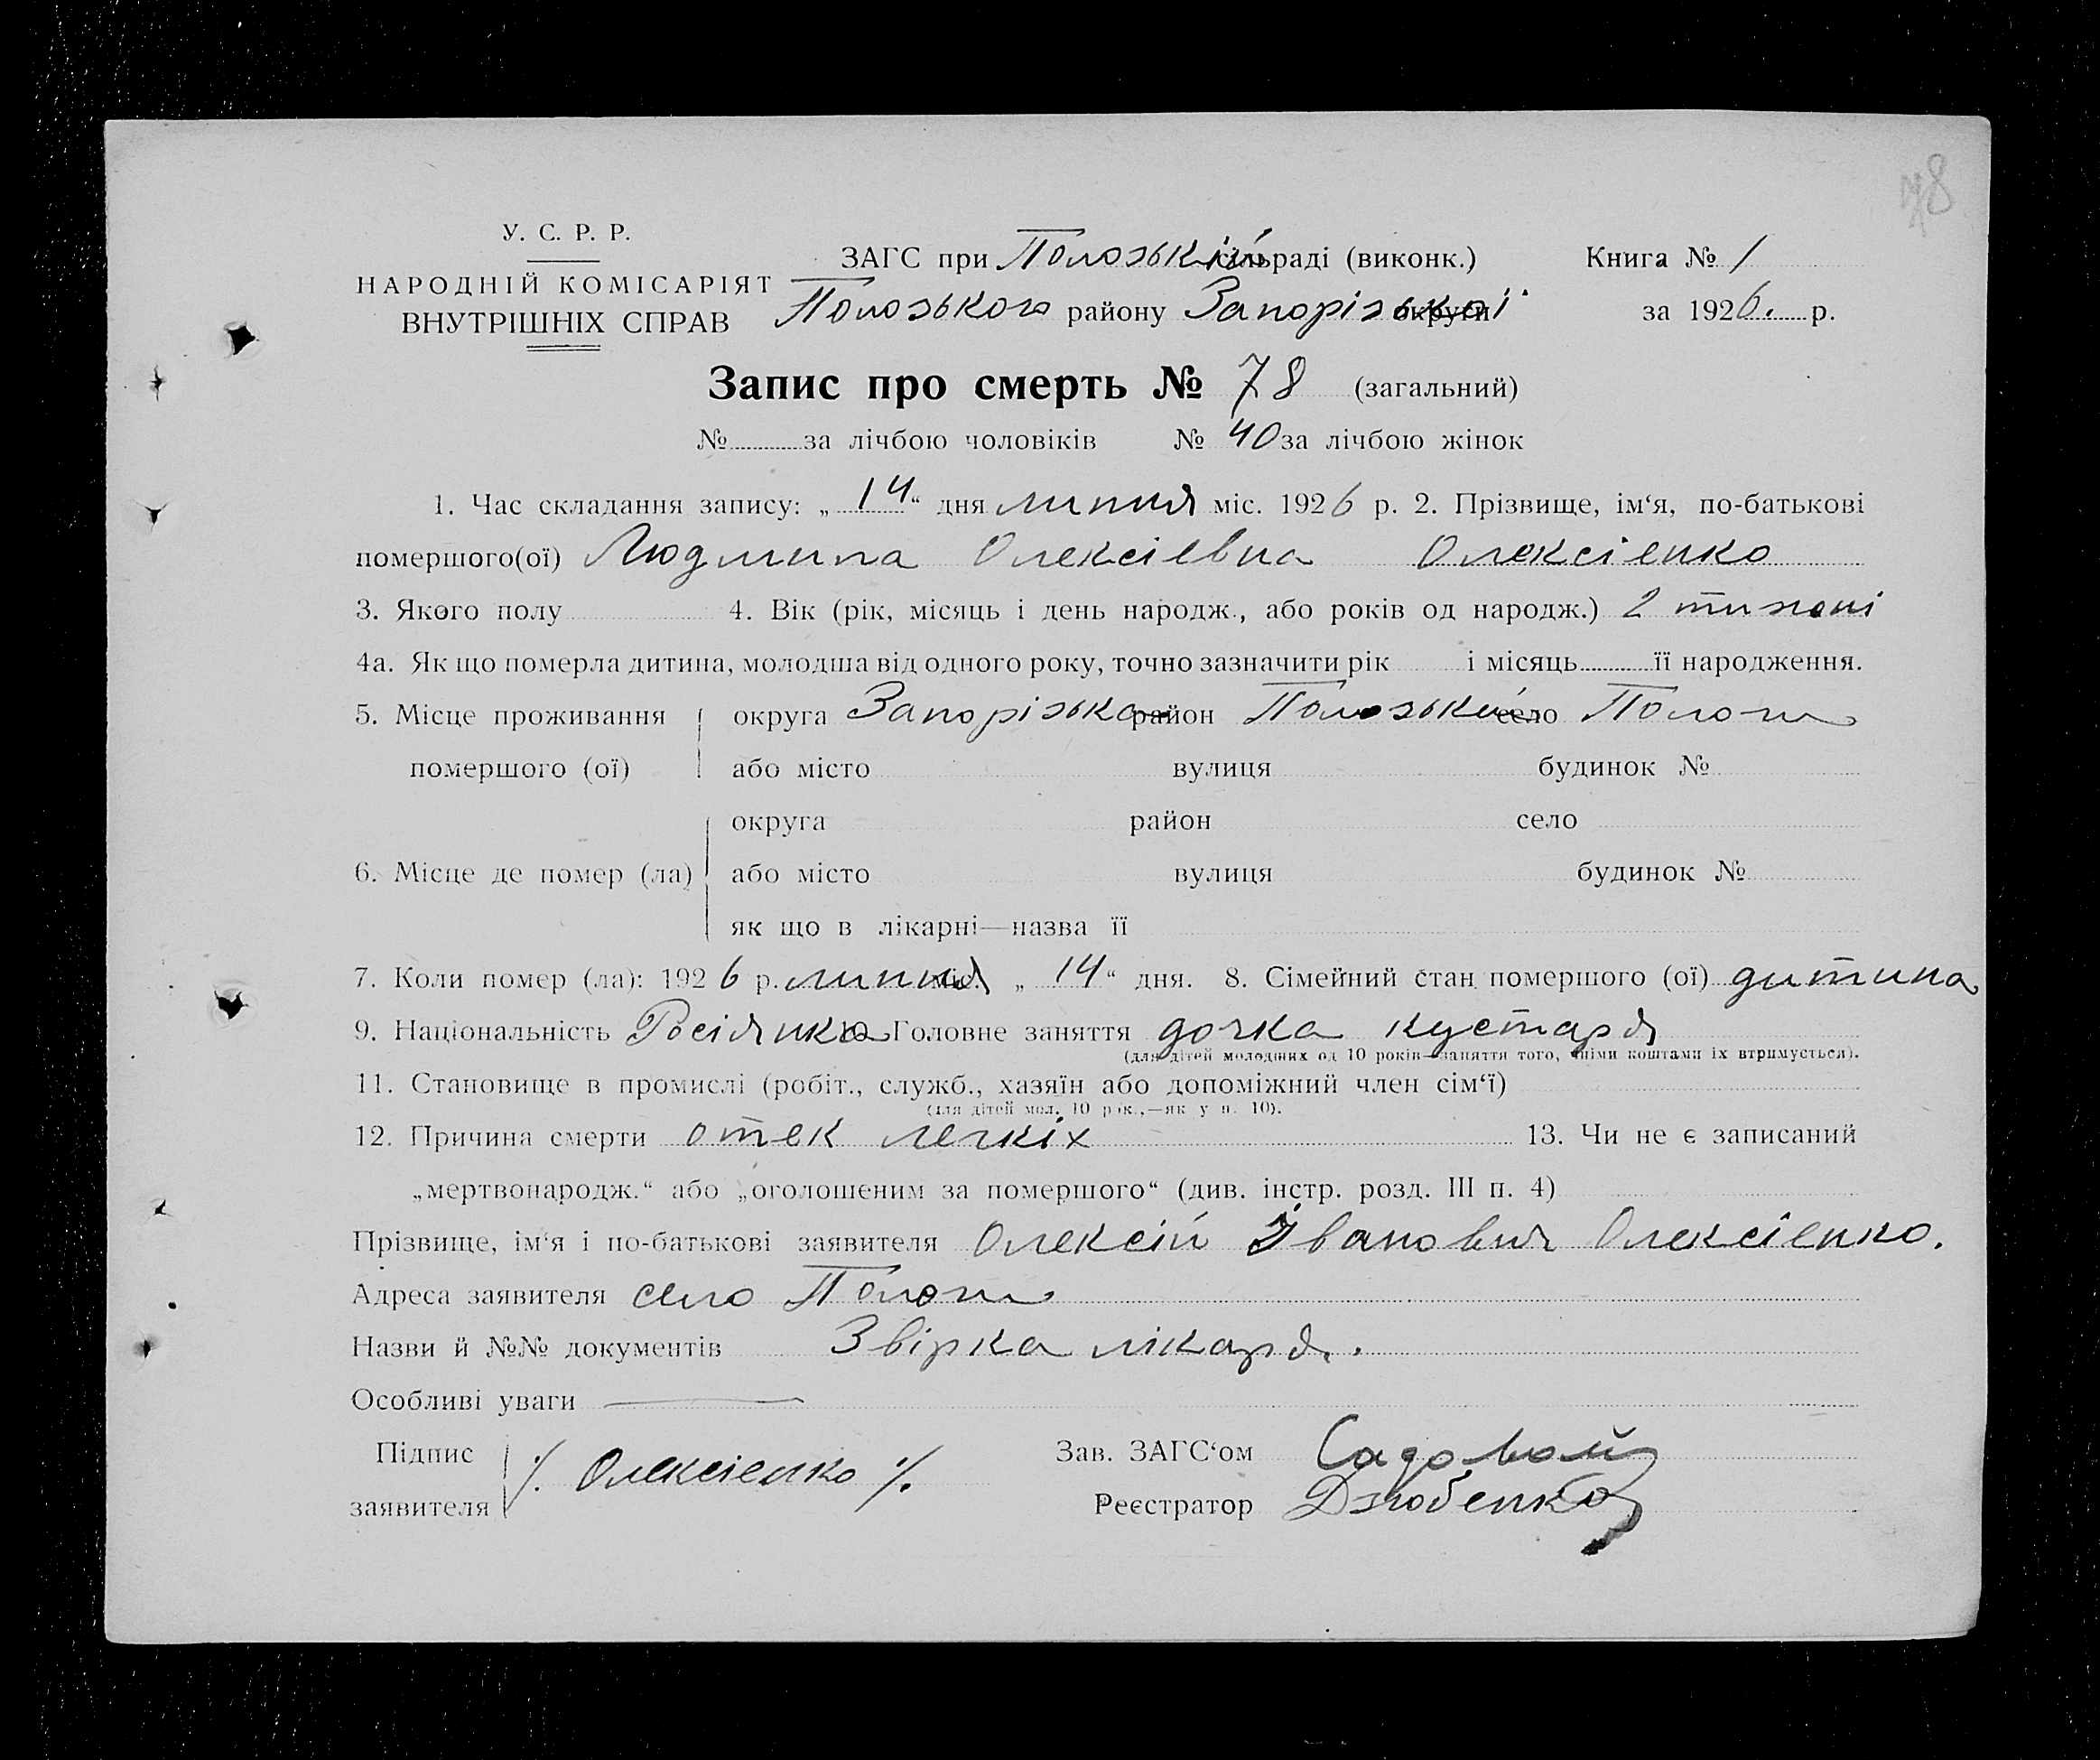 78
У. С. Р. Р.
НАРОДНІЙ КОМІСАРІЯТ
ВНУТРІШНІХ СПРАВ
ЗАГС при Полозькій сільраді (виконк.) Книга № 1
Полозького району Запорізької округи за 1926. р.
Запис про смерть № 78 (загальний)
№ за лічбою чоловіків № 40 за лічбою жінок
1. Час складання запису: „14“ дня липня міс. 1926 р. 2. Прізвище, ім‘я, по-батькові
помершого(ої) Людмила Олексієвна Олексієнко
3. Якого полу 4. Вік (рік, місяць і день народж., або років од народж.) 2 тижні
4а. Як що померла дитина, молодша від одного року, точно зазначити рік і місяць її народження.
5. Місце проживання округа Запорізька район Полозький село Пологи
помершого (ої) або місто вулиця будинок №
округа район село
6. Місце де помер (ла) або місто вулиця будинок №
як що в лікарні—назва її
7. Коли помер (ла): 1926 р. липня міс. „14“ дня. 8. Сімейний стан помершого (ої) дитина
9. Національність Росіянка 10. Головне заняття дочка кустаря
(для дітей молодших од 10 років—заняття того, чиїми коштами їх втримується).
11. Становище в промислі (робіт., служб., хазяїн або допоміжний член сім‘ї)
(для дітей мол. 10 рок.,—як у п. 10).
12. Причина смерти отек легкіх 13. Чи не є записаний
„мертвонародж.“ або „оголошеним за помершого“ (див. інстр. розд. III п. 4)
Прізвище, ім‘я і по-батькові заявителя Олексій Іванович Олексієнко.
Адреса заявителя село Пологи
Назви й №№ документів Звірка лікаря.
Особливі уваги
Підпис
заявителя ·/. Олексієнко ·/.
Зав. ЗАГС‘ом Садовый
Реєстратор Дзюбенко